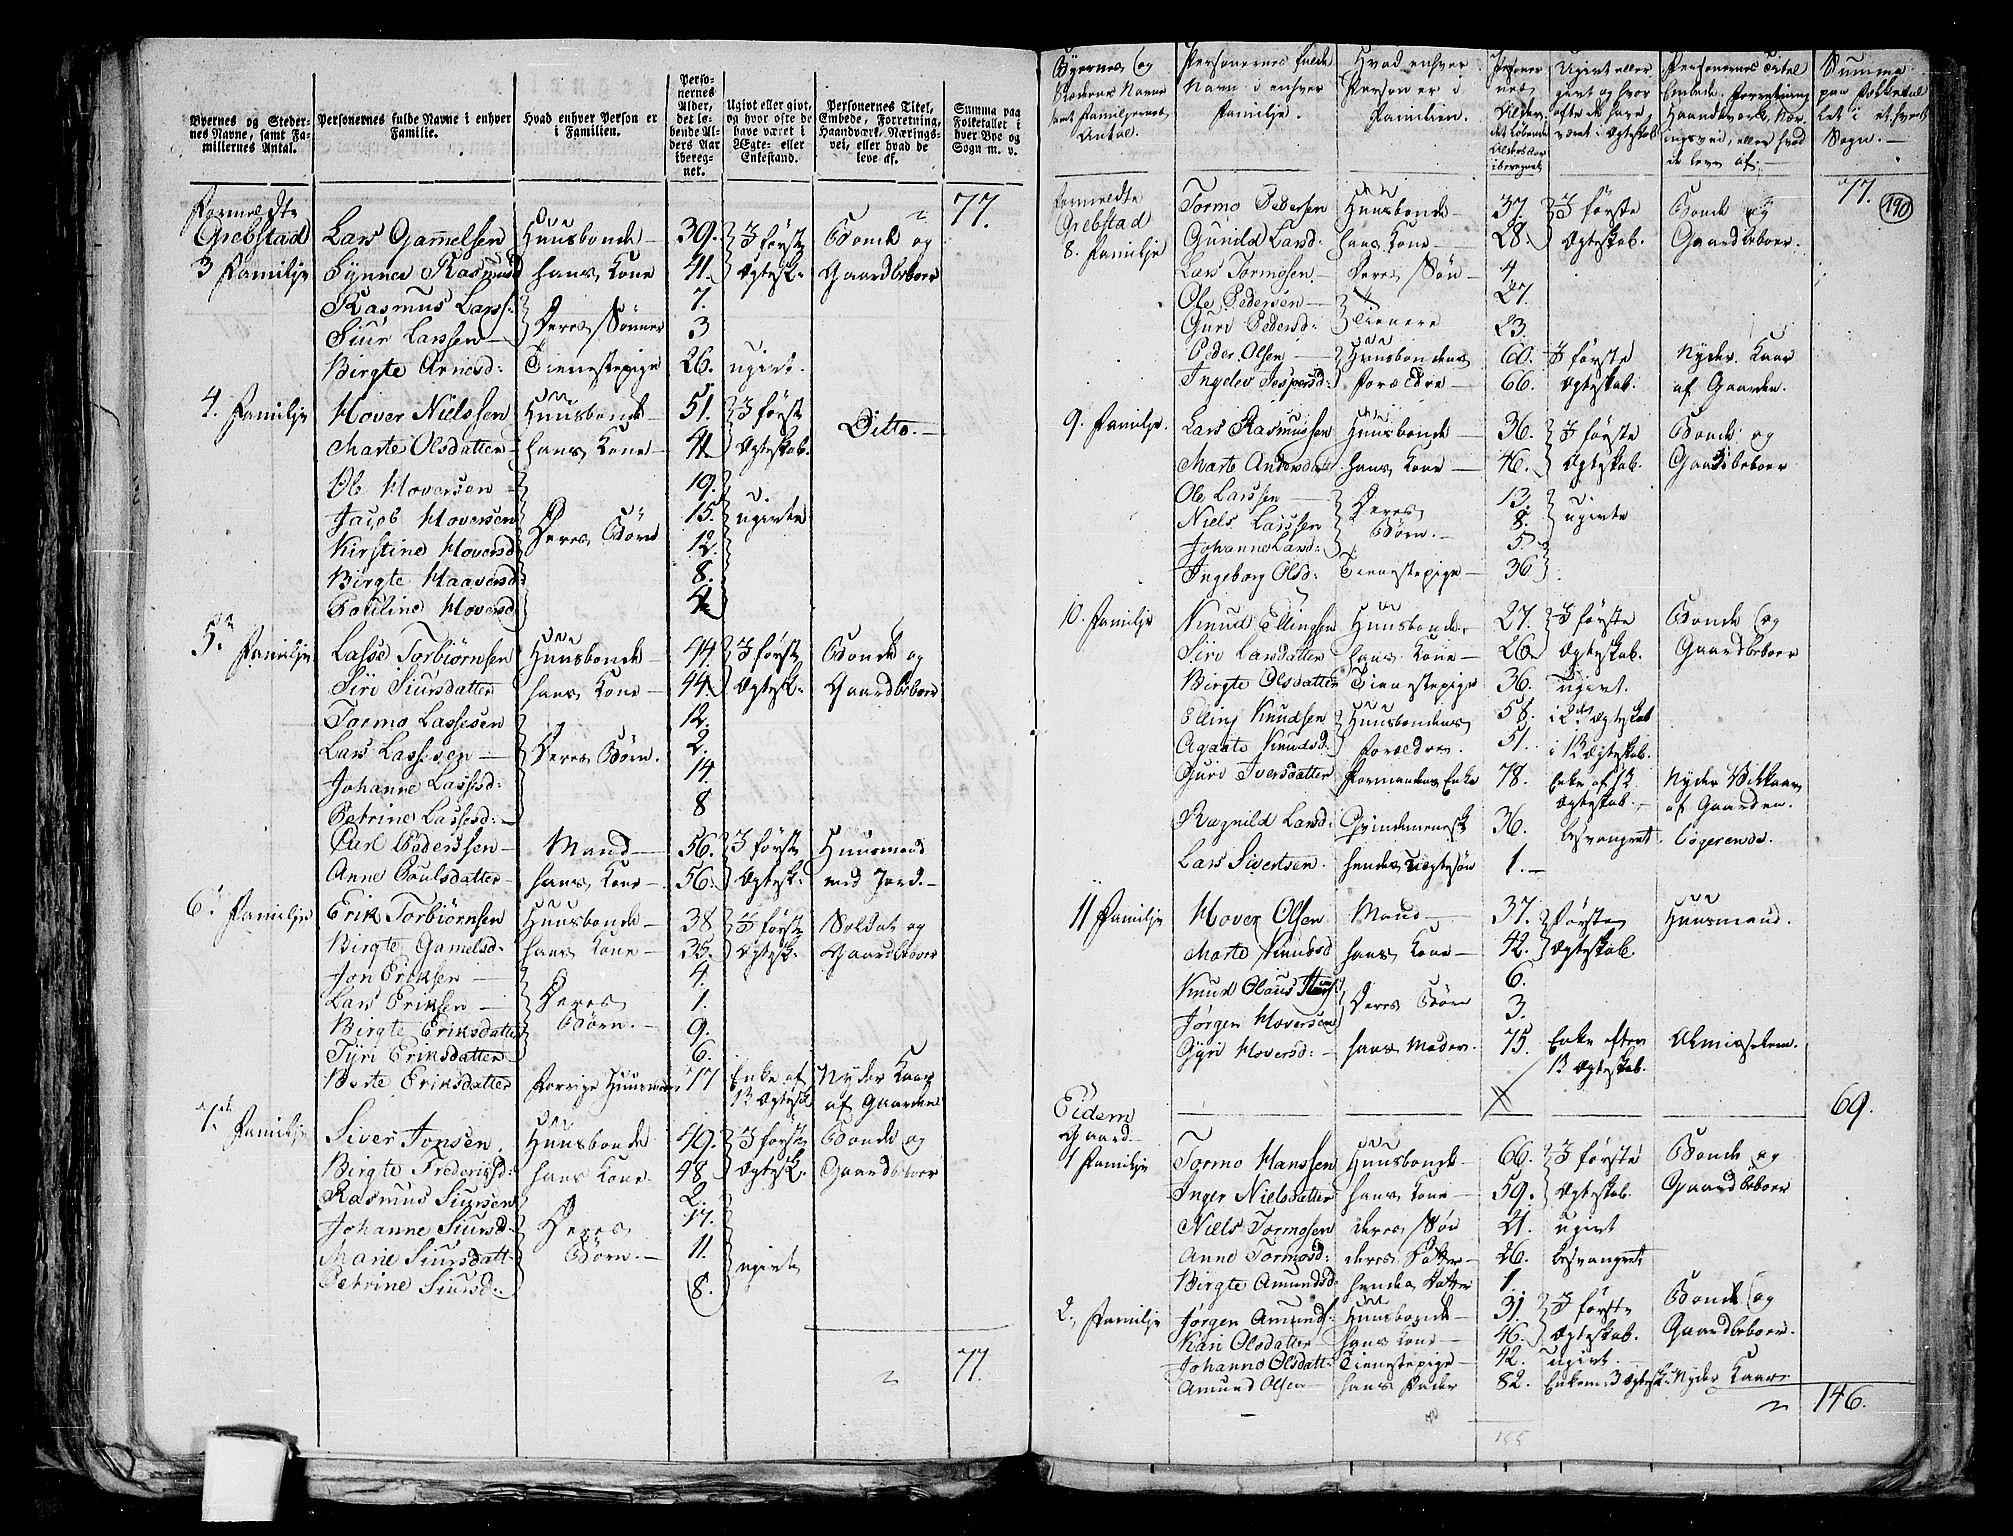 Byernes og Stedernes Navne, samt Familiernes Antal. | Personernes fulde Navne i enhver Familie. | Hvad enhver Person er i Familien. | Personernes Alder, det løbende Alders Aar iberegnet. | Ugivt eller givt, og hvor ofte de have været i Ægte- eller Enkestand. | Personernes Titel, Embede, Forretning, Haandværk, Næringsvei, eller hvad de leve af. | Summa paa Folketallet i hver Bye og Sogn m. v.
Formeldte 77.
Grebstad Lars Gamelsen Huusbonde 39. I første Bonde og
3 Familje Synneve Rasmusd hans Kone 41. Ægtesk: Gaardbeboer
Rasmus Larss: 7.
Siur Larssen Deres Sønner 3
Birgte Arnesd: Tienestepige 26. ugivt.
4. Familje Hover Nielssen Huusbonde 51. I første Ditto.
Marte Olsdatter hans Kone 41 Ægteskab.
Ole Hoversen 19.
Jacob Hoversen Deres Børn 15. ugivte
Kirstine Hoversd 12.
Birgte Haaversd: 8.
Pauline Hoversd 4
5. Familje Lasse Torbiørnsen Huusbonde 44. I første Bonde og
Siri Siursdatter hans Kone 44 Ægtesk: Gaardbeboer
Tormo Lassesen 12.
Lars Lassesen Deres Børn. 2.
Johanne Lassesd: 14
Petrine Lassesd: 8
Carl Pederssen Mand 56. I første Huusmand
Anne Poulsdatter hans Kone 56. Ægtesk: med Jord.
6. Familje Erik Torbiørnsen Huusbonde 38 I første Soldat og
Birgte Gamelsd: hans Kone 35. Ægtesk. Gaardbeboer
Jon Eriksen 4.
Lars Eriksen Deres 1.
Birgte Eriksdatter Børn. 9.
Tyri Eriksdatter 6.
Berte Eriksdatter Forrige Huusmoer 77 Enke af Nyder Kaar
1ste Ægtesk af Gaarden
7. Familje Siver Jonsen Huusbonde 49. I første Bonde og
Birgte Frederiksd: hans Kone 48 Ægtesk. Gaardbeboer
Rasmus Siursen 2.
Johanne Siursd: Deres 17.
Marie Siursdatt Børn. 11. ugivt
Petrine Siursd: 8.
77.
Byernes og Stedernes Navne samt Familjernes Antal. | Personernes fulde Navn i enhver Familje. | Hvad enhver Person er i Familien. | Personernes Alder, det løbende Alders Aar iberegnet | Ugivt eller givt og hvor ofte de have været i Ægteskab | Personernes Titel Embede, Forretning Haandværk, Næringsvei, eller hvad de leve af. | Summa paa Folketallet i et hvert Sogn.
190
Formeldte Tormo Pedersen Huusbonde 37. I første Bonde og 77.
Grebstad Gunild Larsd: hans Kone 28. Ægteskab. Gaardbeboer.
8. Familje Lars Tormosen Deres Søn 4.
Ole Pedersen 27.
Guri Pedersd: Tienere 23.
Peder Olsen Huusbondens 60. I første Nyder Kaar
Ingelev Jespersd: Forældre 66. Ægteskab. af Gaarden.
9. Familje. Lars Rasmussen Huusbonde 36. I første Bonde og
Marte Andersdatt. hans Kone 46. Ægteskab. Gaardbeboer
Ole Larssen Deres 13. ugivte
Niels Larssen Børn. 8.
Johanne Larsd: 5.
Ingeborg Olsd: Tienestepige 36
10. Familje Knud Ellingsen Huusbonde 27. I første Bonde og
Siri Larsdatter hans Kone 26. Ægteskab. Gaardbeboer
Birgte Olsdatter Tienestepige 36. Ugivt.
Elling Knudsen Huusbondens 58. i 2det Ægteskab
Agaate Knudsd. Forældre. 51. i 1ste Ægteskab.
Guri Iversdatter Formandens Enke 78. Enke af 1ste Nyder Vilkaar
Ægteskab. af Gaarden.
Ragnild Larsd: Qvindemenesk 36. besvangret Logerende.
Lars Sivertsen. hendes Uægtesøn 1.
11 Familje Hover Olsen Mand 37. Første Huusmand.
Marte Knudsd hans Kone 42. Ægteskab.
Knud Olaus Deres Børn 6.
Jørgen Hoversen 3.
Gyri Hoversd: hans Moder. 75. Enke efter Almisselem.
1ste Ægteskab.
Eidem 69.
Gaard
1 Familje Tormo Hanssen Huusbonde 66. I første Bonde og
Inger Nielsdatter hans Kone 59. Ægteskab. Gaardbeboer
Niels Tormosen deres Søn 21. ugivt
Anne Tormosd: deres Datter 26. besvangret
Birgte Amundsd: hendes Datter 1.
2. Familje Jørgen Amunds Huusbonde 31. I første Bonde og
Kari Olsdatter hans Kone 46. Ægteskab. Gaardbeboer.
Johanne Olsdatt: Tienestepige 42. ugivt
Amund Olsen hans Fader 82. Enkem: 3 Ægtesk: Nyder Kaar
146.